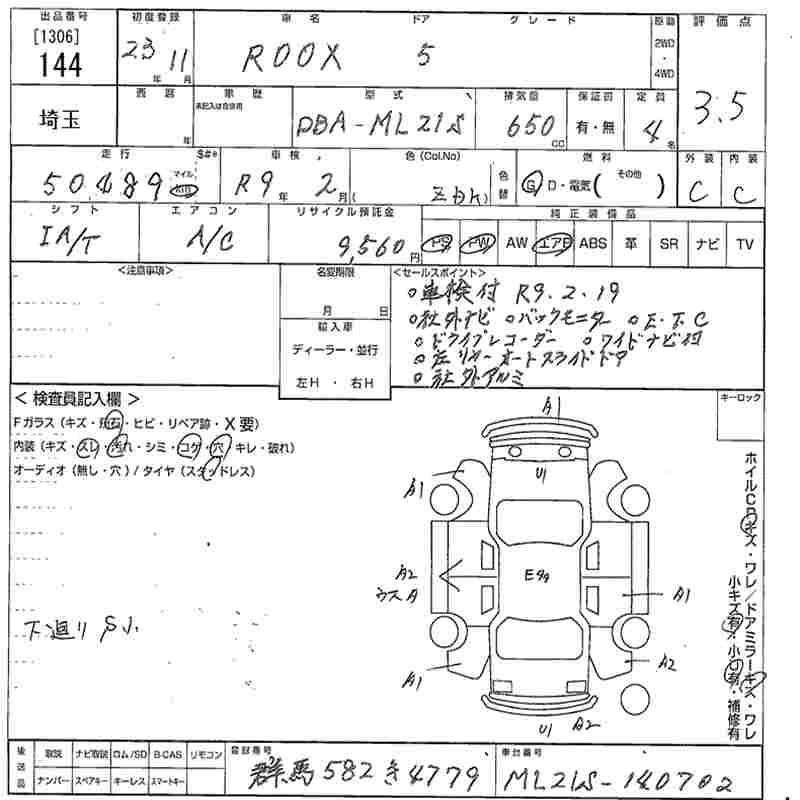 出品番号 初度登録 車名 ドア グレード 原動 評価点
[1306] 144 23年 11月 ROOX 5 2WD・4WD 3.5
埼玉 西暦 年 車歴 未記入は自家用 型式 排気量 保証書 定員
DBA-ML21S 650cc 有・無 4名
走行 S#* 車検 色(Col.No) 色替 燃料 外装 内装
50489 マイル Km R9年 2月( ZDK) G D・電気( その他 ) C C
シフト エアコン リサイクル預託金 純正装備品
IA/T A/C 9,560円 PS PW AW エアB ABS 革 SR ナビ TV
<注意事項> 名変期限 <セールスポイント>
月 日 ○車検付 R9.2.19
輸入車 ○社外ナビ ○バックモニター ○E.T.C
ディーラー・並行 ○ドライブレコーダー ○ワイドナビ付
左H・右H ○左リヤーオートスライドドア
○社外アルミ
<検査員記入欄> キーロック
Fガラス(キズ・飛石・ヒビ・リペア跡・X要)
内装(キズ・スレ・汚れ・シミ・コゲ・穴・キレ・破れ)
オーディオ(無し・穴)/タイヤ(スタッドレス)
A1
U1
A1
A2
ウスA
E多々
A1
A1
A2
U1 A2
下廻りSJ.
ホイルCPキズ・ワレ/ドアミラーキズ・ワレ
小キズ有・小凹有・補修有
後送品 取説 ナビ取説 ロム/SD B-CAS リモコン 登録番号 車台番号
ナンバー スペアキー キーレス スマートキー 群馬582き4779 ML21S-140702